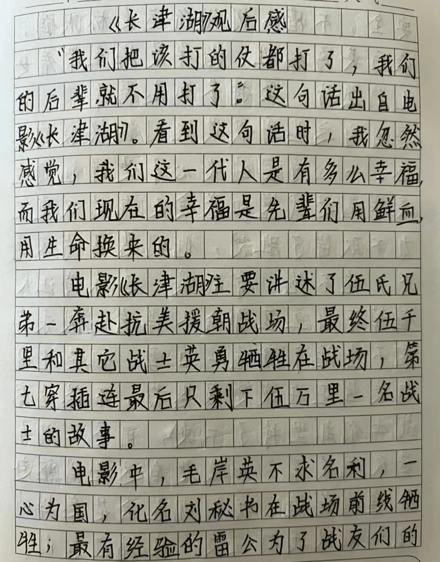 《长津湖》观后感
“我们把该打的仗都打了，我们
的后辈就不用打了”。这句话出自电
影《长津湖》。看到这句话时，我忽然
感觉，我们这一代人是有多么幸福，
而我们现在的幸福是先辈们用鲜血，
用生命换来的。
电影《长津湖》主要讲述了伍氏兄
弟一奔赴抗美援朝战场，最终伍千
里和其它战士英勇牺牲在战场，第
七穿插连最后只剩下伍万里一名战
士的故事。
电影中，毛岸英不求名利，一
心为国，化名刘秘书在战场前线牺
牲；最有经验的雷公为了战友们的